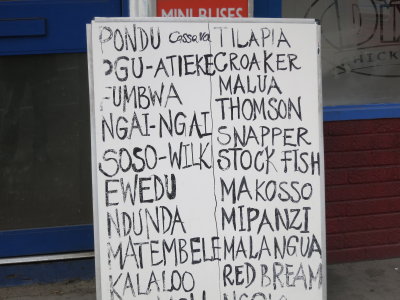 MINI BUSES
PONDU Cassava
OGU-ATIEKE
FUMBWA
NGAI-NGAI
SOSO-WILK
EWEDU
NDUNDA
MATEMBELE
KALALOO
TILAPIA
CROAKER
MALUA
THOMSON
SNAPPER
STOCK FISH
MAKOSSO
MIPANZI
MALANGUA
RED BREAM